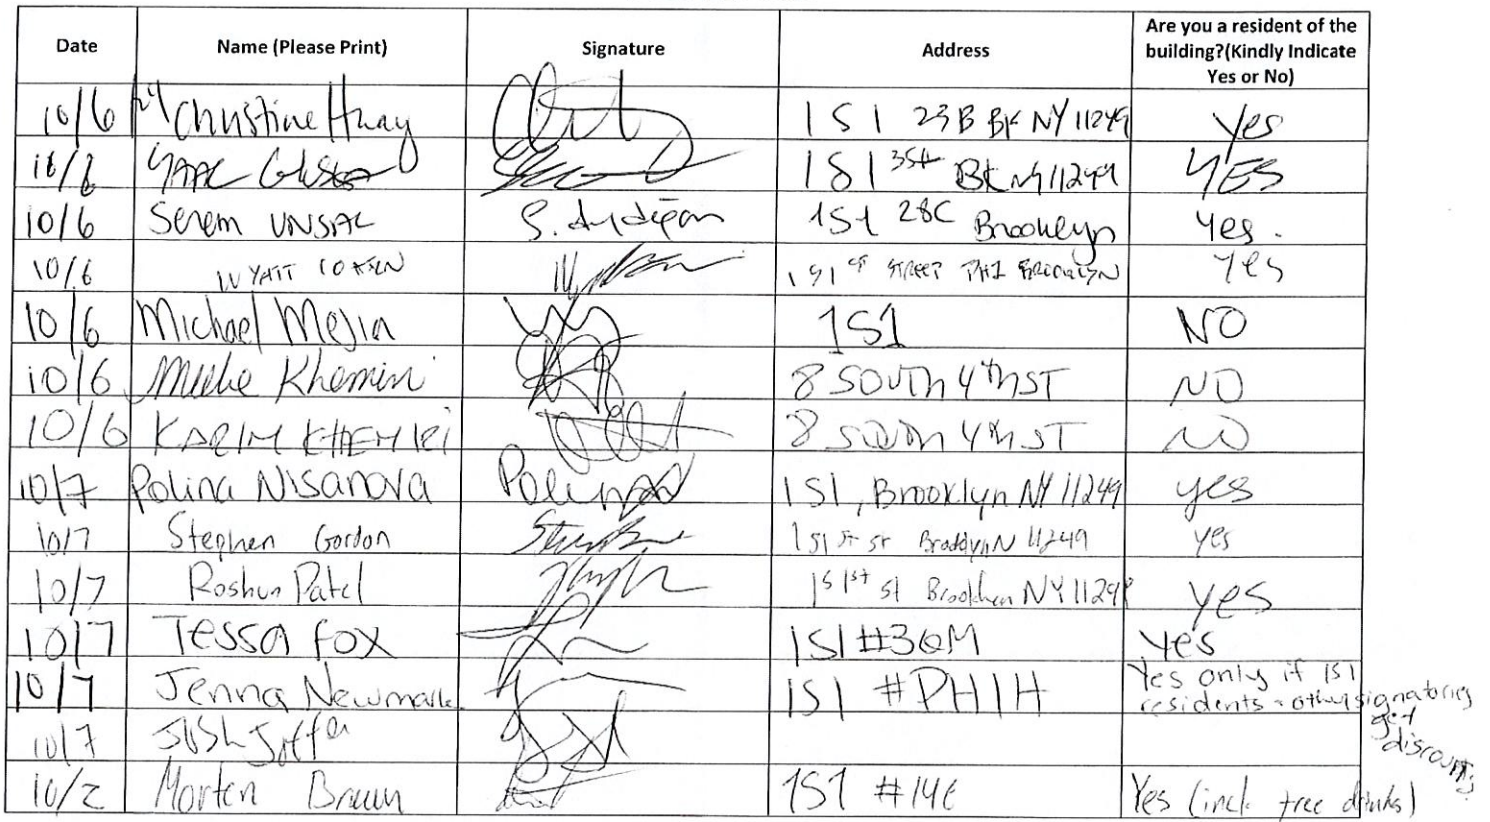 Date Name (Please Print) Signature Address Are you a resident of the building?(Kindly Indicate Yes or No)
10/6 Christine Hway 1S1 23B BK NY 11249 Yes
10/6 1S1 BK NY 11249 YES
10/6 Senem UNSAL 1S1 28C Brooklyn Yes.
10/6 WYATT COHEN 1S1 STREET PH2 BROOKLYN Yes
10/6 Michael Mejia 1S1 NO
10/6 Khemiri 8 SOUTH 4th ST NO
10/6 KARIM KHEMIRI 8 SOUTH 4th ST NO
10/7 Polina Nisanova 1S1, Brooklyn NY 11249 yes
10/7 Stephen Gordon 1S1 st st 11249 yes
10/7 Roshun Patel 1S1st st NY 11249 yes
10/7 Tessa Fox 1S1 #30M Yes
10/7 Jenna Newmark 1S1 #PH1H Yes only if 1S1 residents + other signatories get discounts
10/7 Josh Joffe
10/7 Morten 1S1 #14E Yes (incl. free drinks)